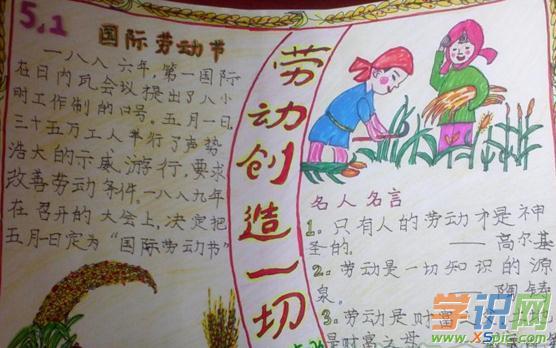 5.1
国际劳动节
一八八六年,第一国际
在日内瓦会议提出了八小
时工作制的口号。五月一日,
三十五万工人举行了声势
浩大的示威游行,要求
改善劳动条件。一八八九年
在召开的大会上,决定把
五月一日定为“国际劳动节”
劳动创造一切
名人名言
1。只有人的劳动才是神
圣的。
——高尔基
2。劳动是一切知识的源
泉。
——陶铸
3。劳动是财富之
是财富之母
学识网
www.xspic.com